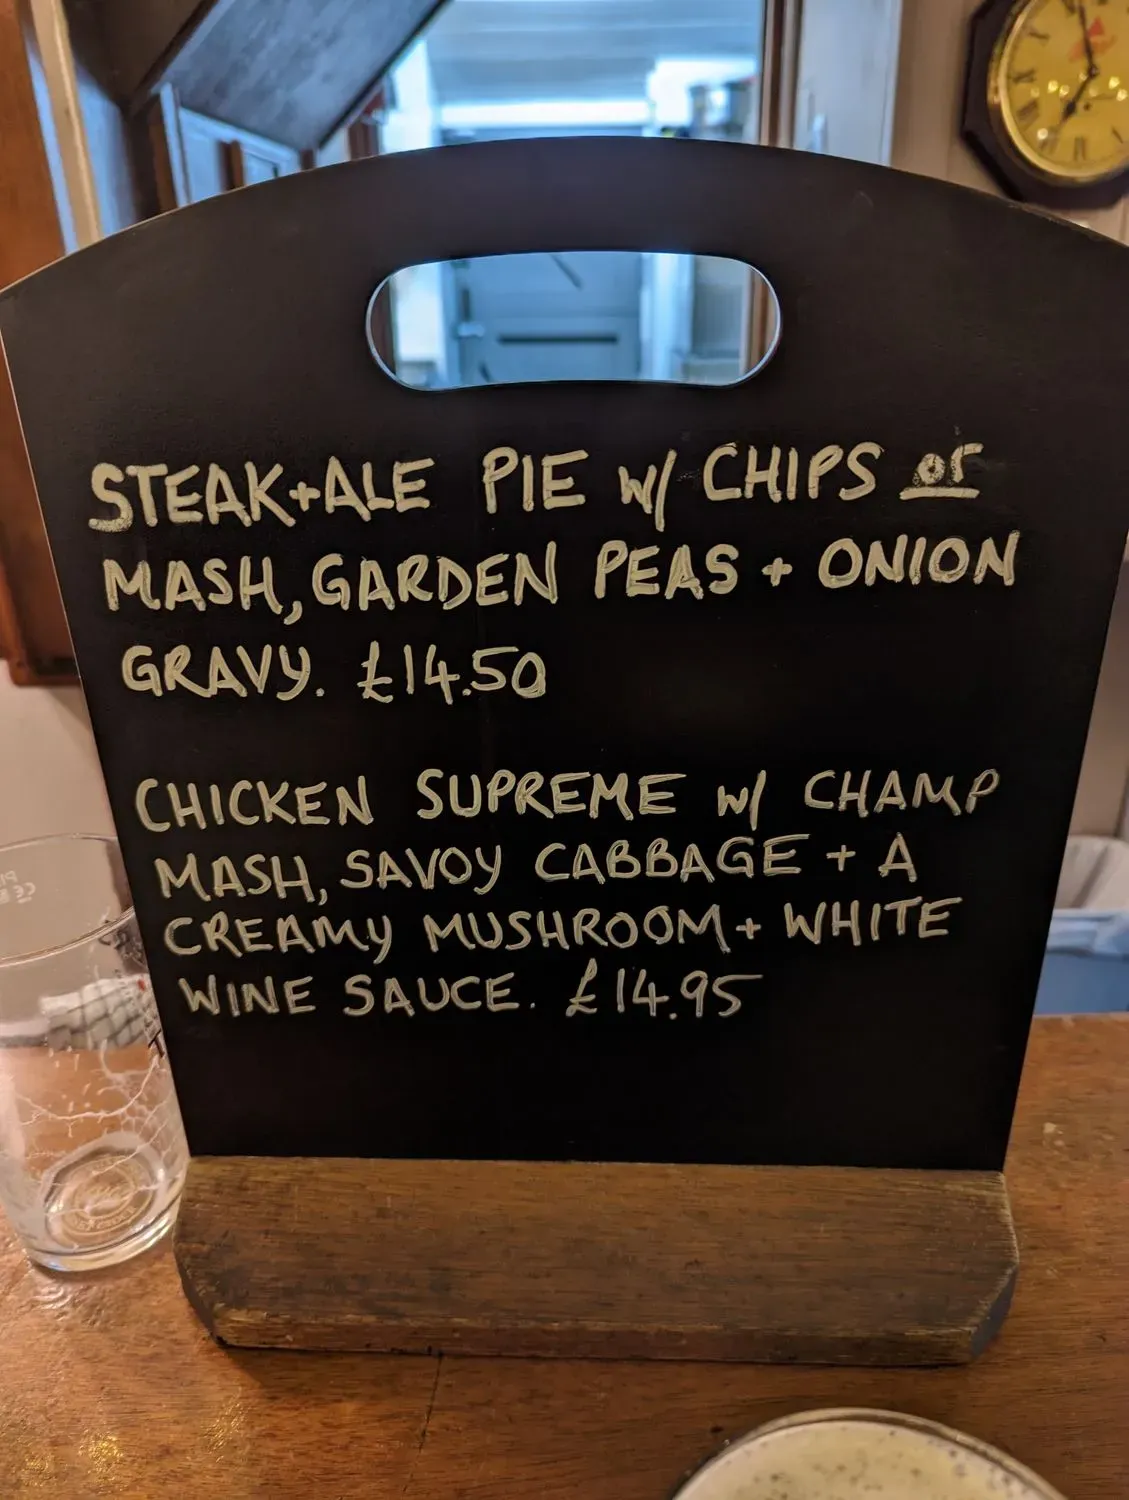 STEAK+ALE PIE w/ CHIPS or
MASH, GARDEN PEAS + ONION
GRAVY. £14.50
CHICKEN SUPREME w/ CHAMP
MASH, SAVOY CABBAGE + A
CREAMY MUSHROOM + WHITE
WINE SAUCE. £14.95